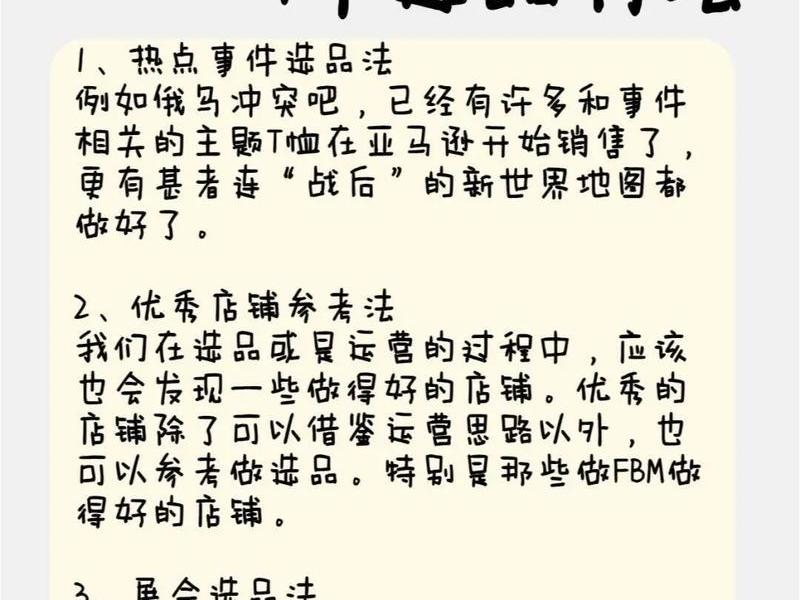 1、热点事件选品法
例如俄乌冲突吧，已经有许多和事件
相关的主题T恤在亚马逊开始销售了，
更有甚者连“战后”的新世界地图都
做好了。
2、优秀店铺参考法
我们在选品或是运营的过程中，应该
也会发现一些做得好的店铺。优秀的
店铺除了可以借鉴运营思路以外，也
可以参考做选品。特别是那些做FBM做
得好的店铺。
3、展会选品法